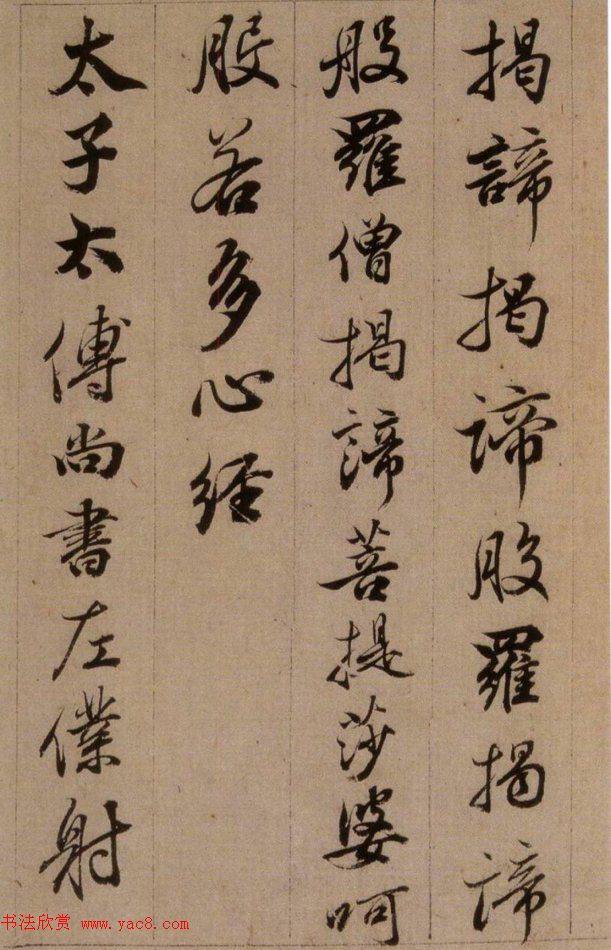 揭諦揭諦般羅揭諦
般羅僧揭諦菩提莎婆呵
般若多心經
太子太傅尚書左僕射
书法欣赏 www.yac8.com